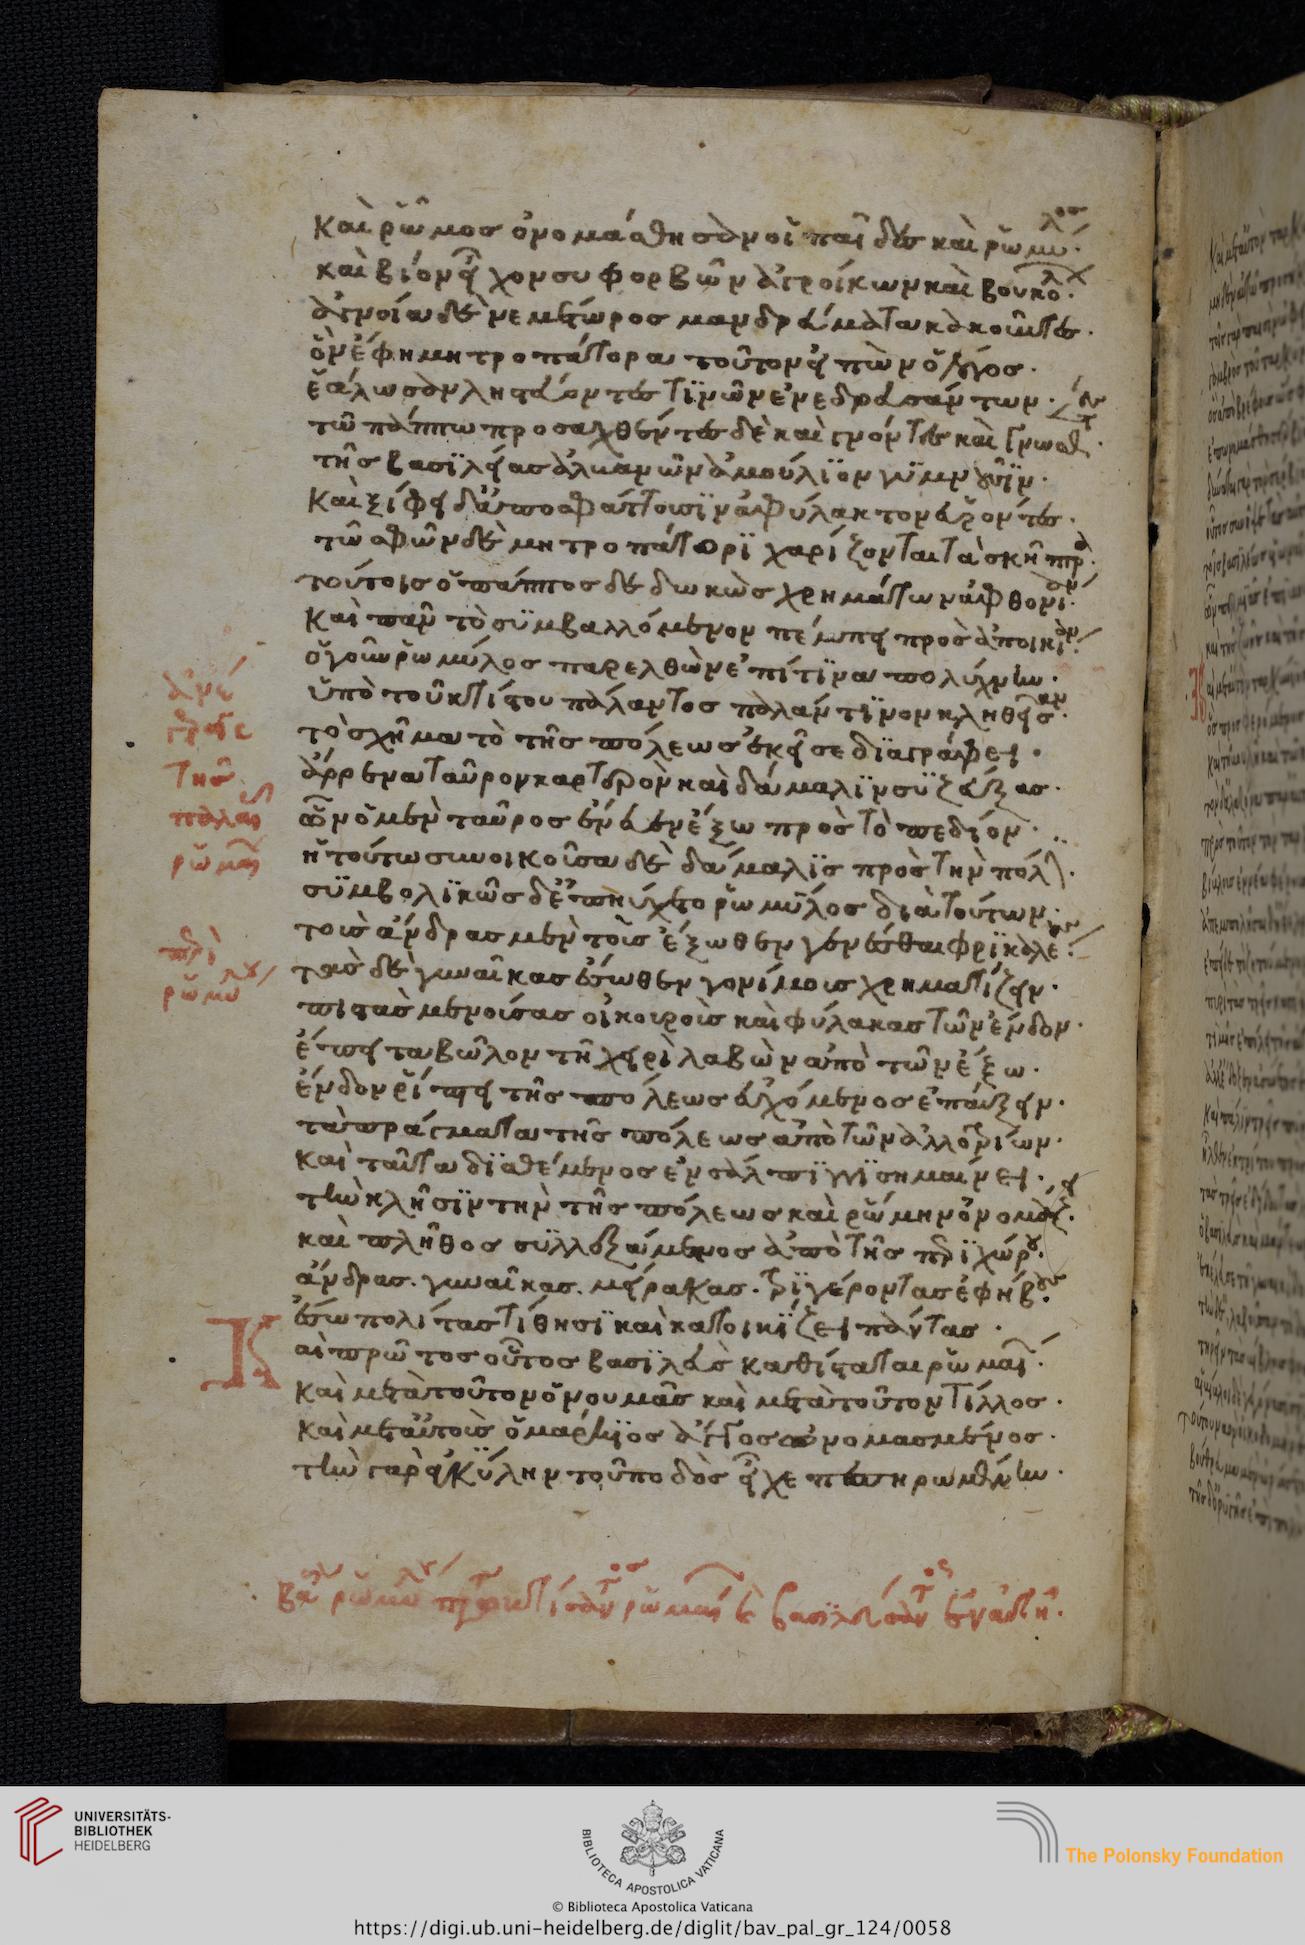 Καὶ ῥῶμος ὀνομάσθησαν οἱ παῖδες καὶ ῥωμύλος·
καὶ βίον εἶχον συφορβῶν ἀγροίκων καὶ βουκόλων·
ἀγνοίᾳ δὲ νεμέτωρος μανδρά ματα κακοῦντες·
ὃν ἔφην μητροπάτορα τοῦτον εἰπὼν ὁ λόγος·
ἑάλωσαν ληστεύοντες τινῶν ἐνεδρευσάντων·
τῷ πάππῳ προσαχθέντες δὲ καὶ γνόντες καὶ γνωσθέντες
τῆς βασϊλείας ἀλκανῶν ἀμούλϊον γυμνοῦσϊν·
Καὶ ξίφει δ' ἀποσφάττουσϊν ἀφύλακτον εὑρόντες·
τῷ σφῶν δὲ μητροπάτορϊ χαρίζονται τὰ σκῆπτρα·
τούτοις ὁ πάππος δεδωκὼς χρημάτων ἀφθονίαν·
Καὶ πᾶν τὸ συμβαλλόμενον πέμπει πρὸς ἀποικίαν·
ὁ γοῦν ῥωμύλος παρελθὼν ἐπί τινα πολίχνην·
ὑπὸ τοῦ κτίστου πάλαντος παλάντϊνον κληθεῖσαν·
τὸ σχῆμα τὸ τῆς πόλεως ἐκεῖσε δϊαγράφει·
ἄρρενα ταῦρον καρτερὸν καὶ δάμαλϊν συζεύξας·
ὧν ὁ μὲν ταῦρος ἔνευεν ἔξω πρὸς τὸ πεδίον·
ἡ τούτῳ συνοικοῦσα δὲ δάμαλϊς πρὸς τὴν πόλιν·
συμβολϊκῶς δ' ἐπηύχετο ῥωμύλος διὰ τούτων·
τοὺς ἄνδρας μὲν τοῖς ἔξωθεν γενέσθαι φρϊκαλέους·
τὰς δὲ γυναῖκας ἔσωθεν γονίμοις χρηματίζειν·
πιστὰς μενούσας οἰκουροὺς καὶ φύλακας τῶν ἔνδον·
ἔπειτα βῶλον τῇ χειρὶ λαβὼν ἀπὸ τῶν ἔξω·
ἔνδον ῥίπτει τῆς πόλεως εὐχόμενος ἐπαύξειν·
τὰ πράγματα τῆς πόλεως ἀπὸ τῶν ἀλλοτρίων·
Καὶ ταῦτα διαθέμενος ἐν σάλπιγγι σημαίνει·
τὴν κλῆσϊν τὴν τῆς πόλεως καὶ ῥώμην ὀνομάζει·
καὶ πλῆθος συλλεξάμενος ἀπὸ τῆς περϊχώρου·
ἄνδρας. γυναῖκας. μείρακας. γέροντας ἐφήβους·
ἔσω πολίτας τίθησϊ καὶ κατοικίζει πάντας·
Καὶ πρῶτος οὗτος βασϊλεὺς καθίσταται ῥωμαίων·
Καὶ μετὰ τοῦτον ὁ νουμᾶς καὶ μετὰ τοῦτον τίλλος·
Καὶ μετ' αὐτοὺς ὁ μάρκϊος ἄγκος ὠνομασμένος·
τὴν γὰρ ἀγκύλην τοῦ ποδὸς εἶχε πεπηρωμένην·
ἀναγραφὴ
τῆς
παλαιᾶς
ῥώμης
περὶ
ῥωμύλου
UNIVERSITÄTS-
BIBLIOTHEK
HEIDELBERG
BIBLIOTECA APOSTOLICA VATICANA
The Polonsky Foundation
© Biblioteca Apostolica Vaticana
https://digi.ub.uni-heidelberg.de/diglit/bav_pal_gr_124/0058